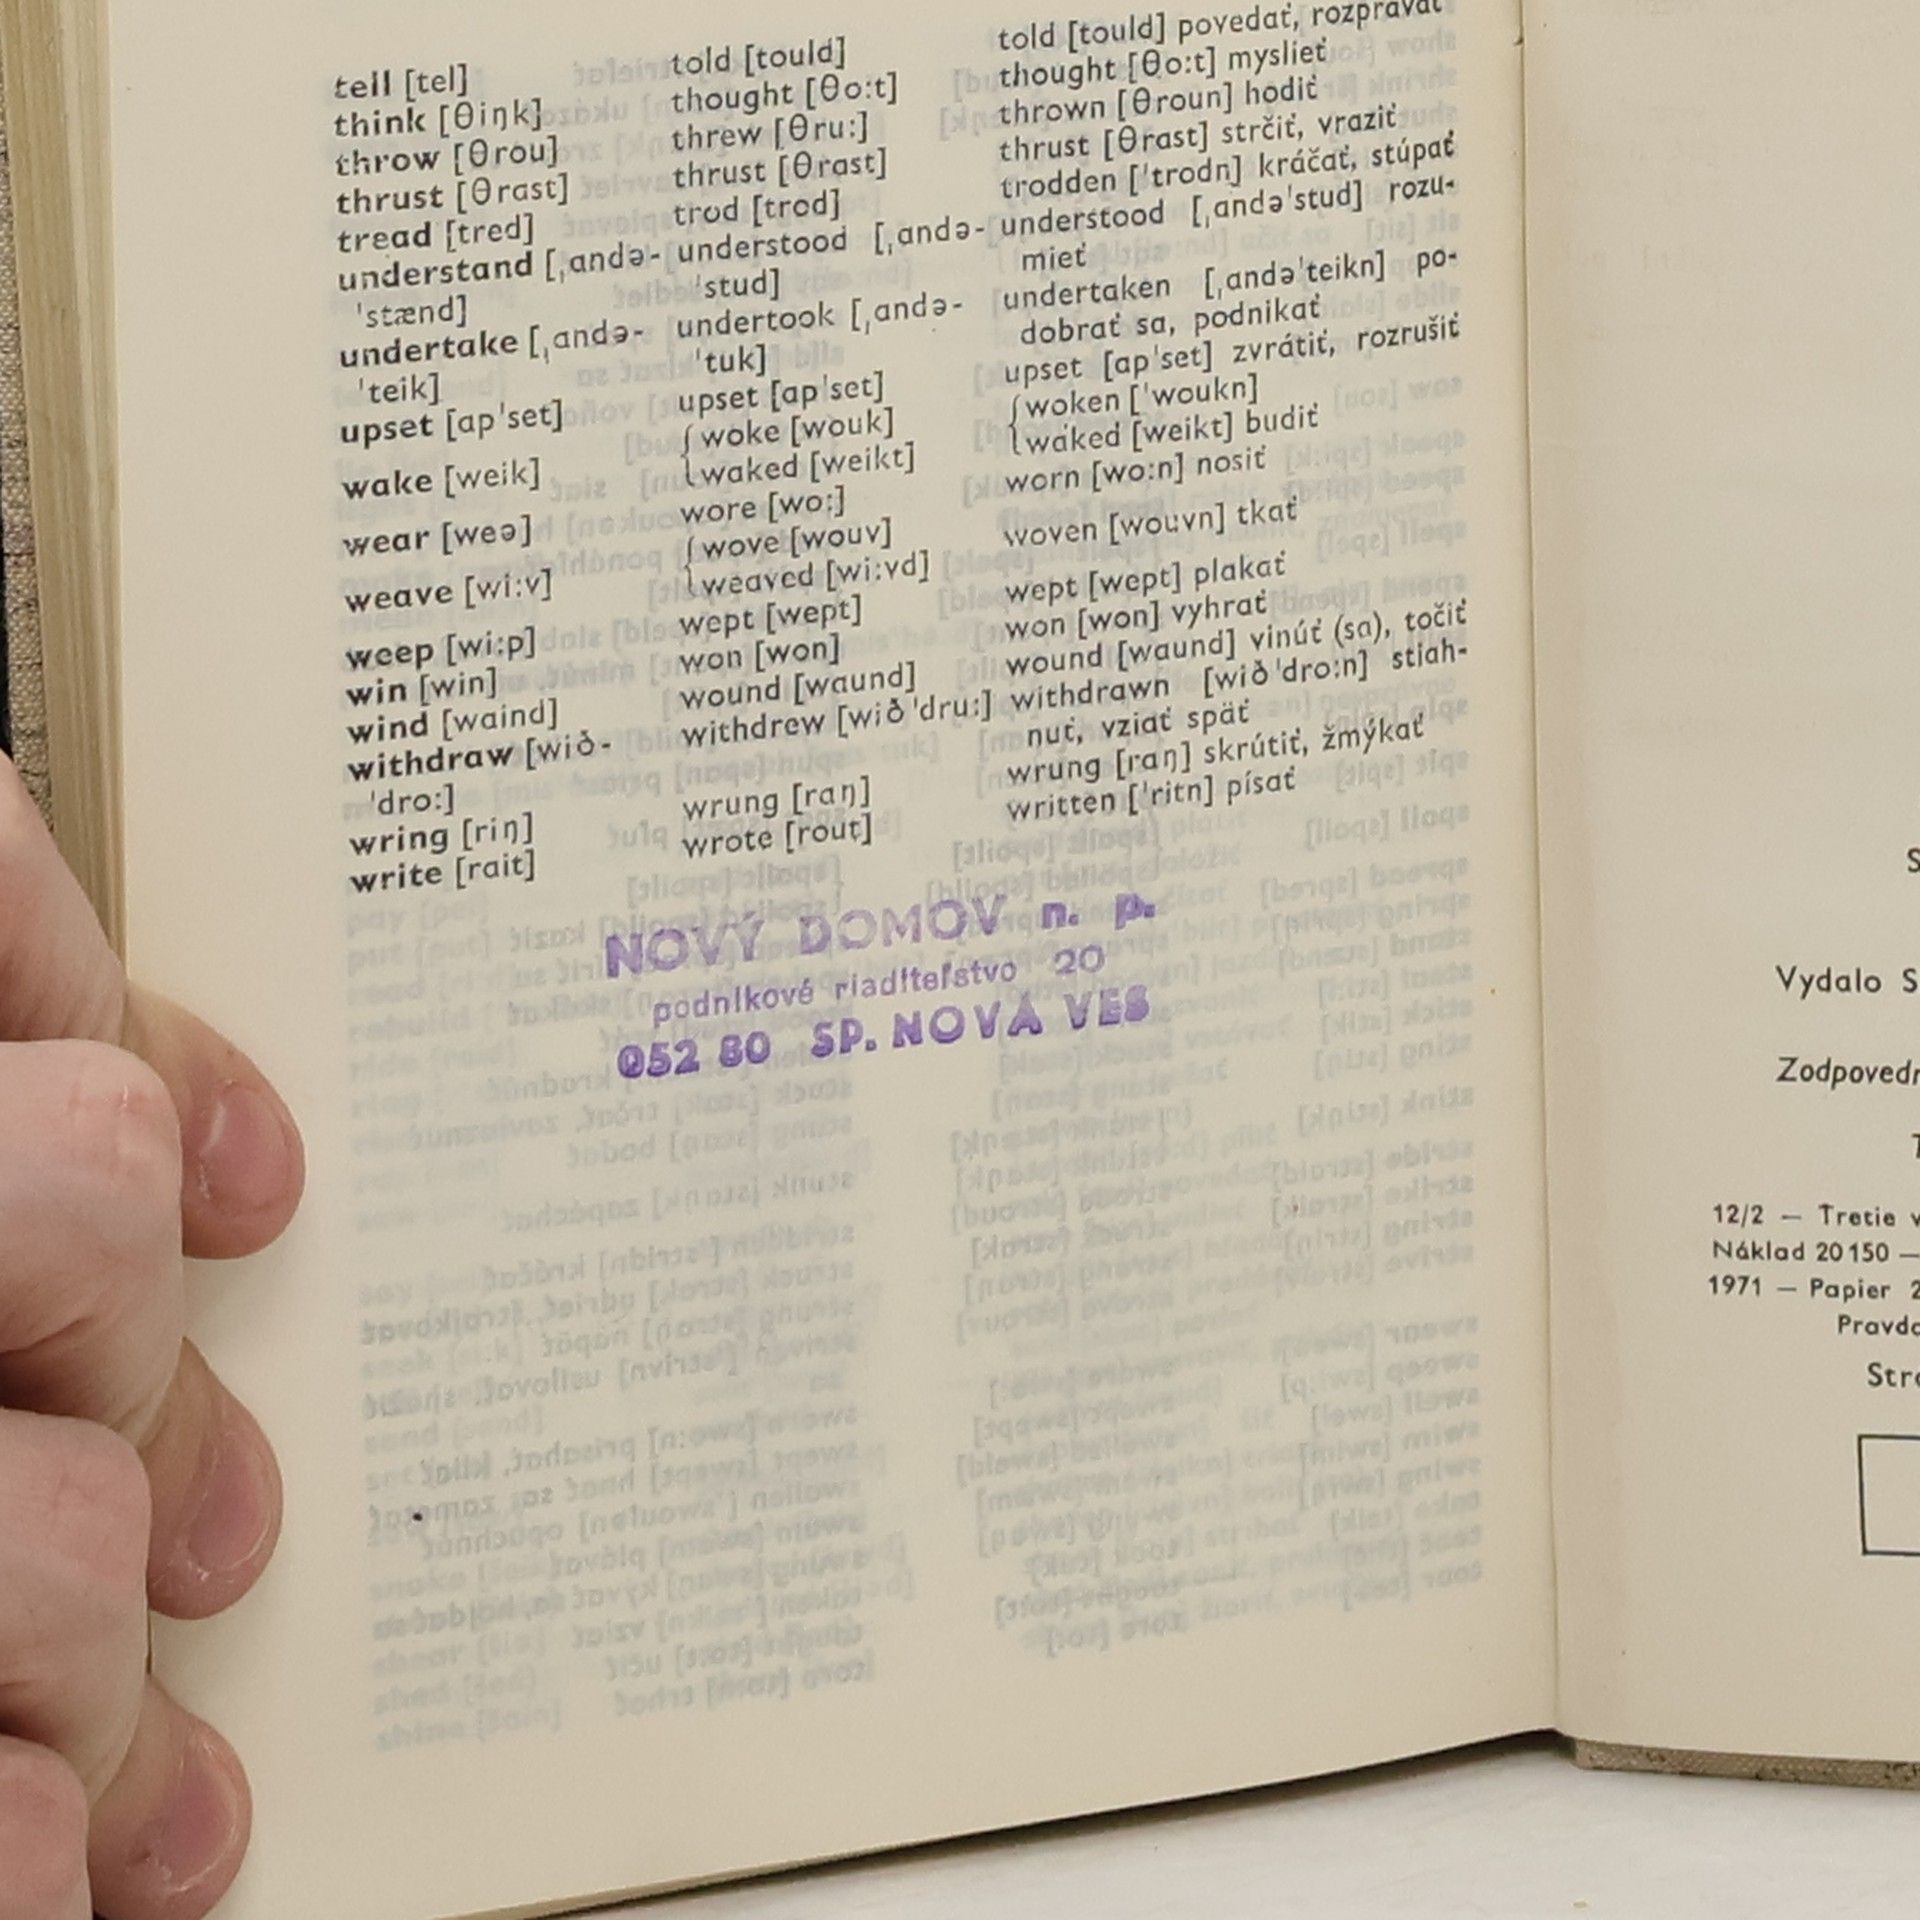 tell [tel] told [tould] told [tould] povedať, rozprávať
think [θiŋk] thought [θo:t] thought [θo:t] myslieť
throw [θrou] threw [θru:] thrown [θroun] hodiť
thrust [θrast] thrust [θrast] thrust [θrast] strčiť, vraziť
tread [tred] trod [trod] trodden [ˈtrodn] kráčať, stúpať
understand [ˌandə- understood [ˌandə- understood [ˌandəˈstud] rozu-
ˈstænd] ˈstud] mieť
undertake [ˌandə- undertook [ˌandə- undertaken [ˌandəˈteikn] po-
ˈteik] ˈtuk] dobrať sa, podnikať
upset [apˈset] upset [apˈset] upset [apˈset] zvrátiť, rozrušiť
wake [weik] { woke [wouk] { woken [ˈwoukn]
waked [weikt] waked [weikt] budiť
wear [weə] wore [wo:] worn [wo:n] nosiť
weave [wi:v] { wove [wouv] woven [wouvn] tkať
weaved [wi:vd]
weep [wi:p] wept [wept] wept [wept] plakať
win [win] won [won] won [won] vyhrať
wind [waind] wound [waund] wound [waund] vinúť (sa), točiť
withdraw [wið- withdrew [wiðˈdru:] withdrawn [wiðˈdro:n] stiah-
ˈdro:] nuť, vziať späť
wring [riŋ] wrung [raŋ] wrung [raŋ] skrútiť, žmýkať
write [rait] wrote [rout] written [ˈritn] písať
NOVÝ DOMOV n. p.
podnikové riaditeľstvo 20
052 80 SP. NOVÁ VES
S
Vydalo S
Zodpovedn
T
12/2 — Tretie v
Náklad 20 150 —
1971 — Papier 2
Pravda
Stro